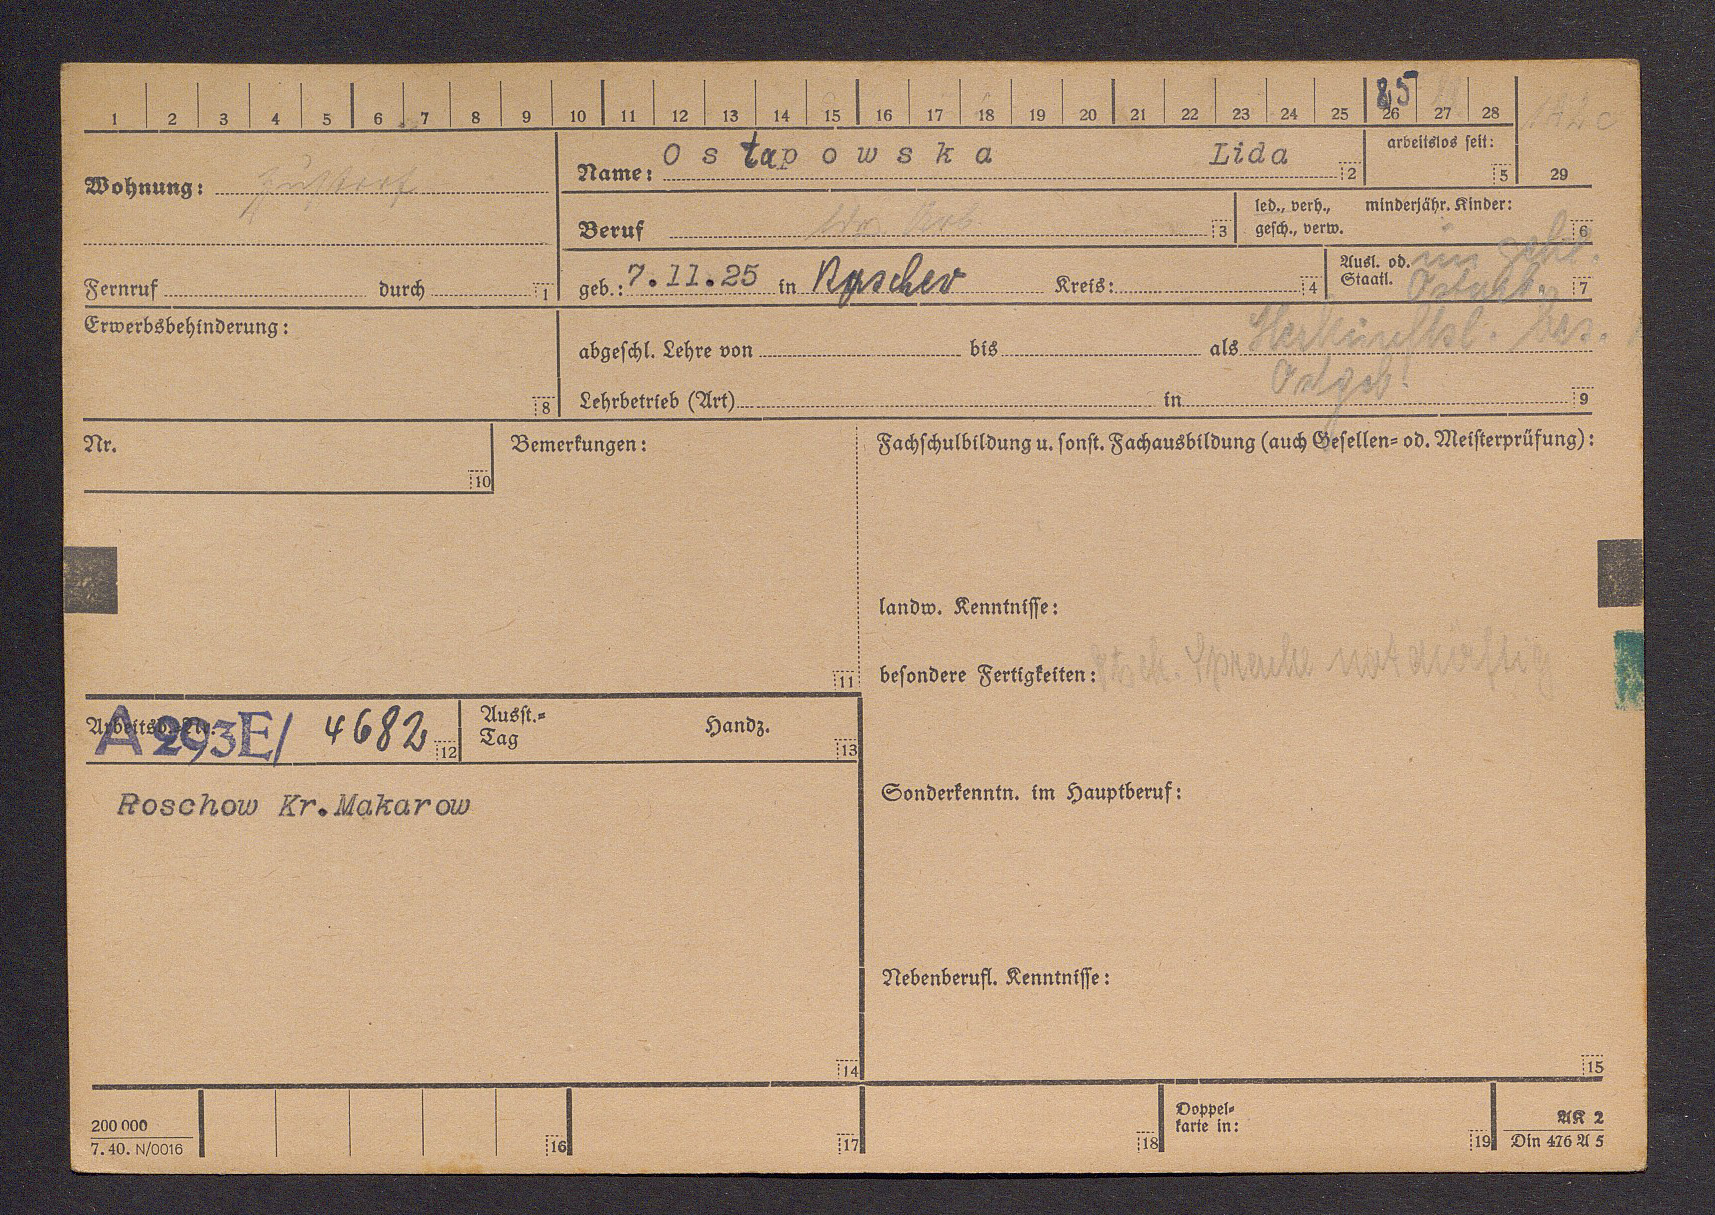 1 2 3 4 5 6 7 8 9 10 11 12 13 14 15 16 17 18 19 20 21 22 23 24 25 26 27 28
85
Wohnung:
Name: Ostapowska Lida 2
arbeitslos seit: 5
29
Beruf 3
led., verh., gesch., verw.
minderjähr. Kinder: 6
Fernruf durch 1
geb.: 7.11.25 in Kreis: 4
Ausl. od. Staatl. 7
Erwerbsbehinderung: 8
abgeschl. Lehre von bis als
Ostgeb!
Lehrbetrieb (Art) in 9
Nr. 10
Bemerkungen: 11
Fachschulbildung u. sonst. Fachausbildung (auch Gesellen= od. Meisterprüfung):
landw. Kenntnisse:
besondere Fertigkeiten: Sprache notdürftig
Arbeitsb.=Nr. A 293E/ 4682 12
Ausst.=Tag Handz. 13
Roschow Kr.Makarow
14
Sonderkenntn. im Hauptberuf:
Nebenberufl. Kenntnisse:
15
200 000
7. 40. N/0016
16 17 18
Doppel=
karte in: 19
AK 2
Din 476 A 5